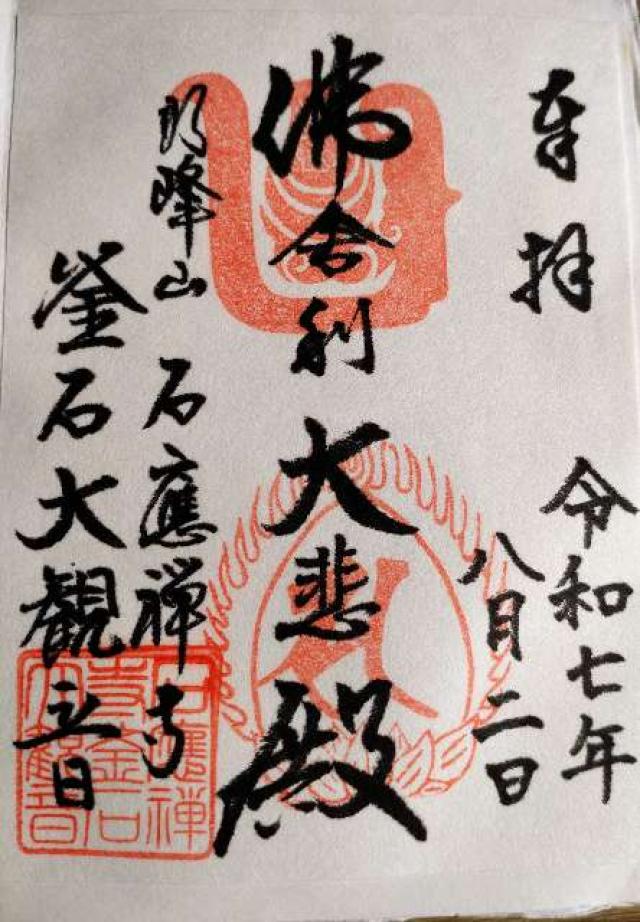 奉拝
令和七年
八月二日
佛舎利 大悲殿
明峰山 石應禅寺
釜石大観音
石應禅
寺釜石
大観音